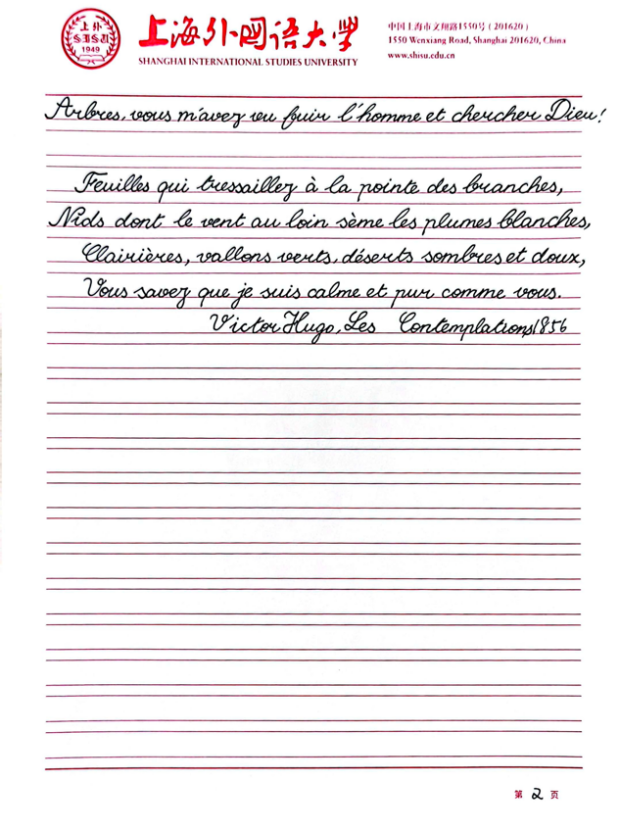 上外
SISU
1949
上海外国语大学
SHANGHAI INTERNATIONAL STUDIES UNIVERSITY
中国上海市文翔路1550号（201620）
1550 Wenxiang Road, Shanghai 201620, China
www.shisu.edu.cn
Arbres, vous m'avez vu fuir l'homme et chercher Dieu!
Feuilles qui tressaillez à la pointe des branches,
Nids dont le vent au loin sème les plumes blanches,
Clairières, vallons verts, déserts sombres et doux,
Vous savez que je suis calme et pur comme vous.
Victor Hugo, Les Contemplations, 1856
第 2 页